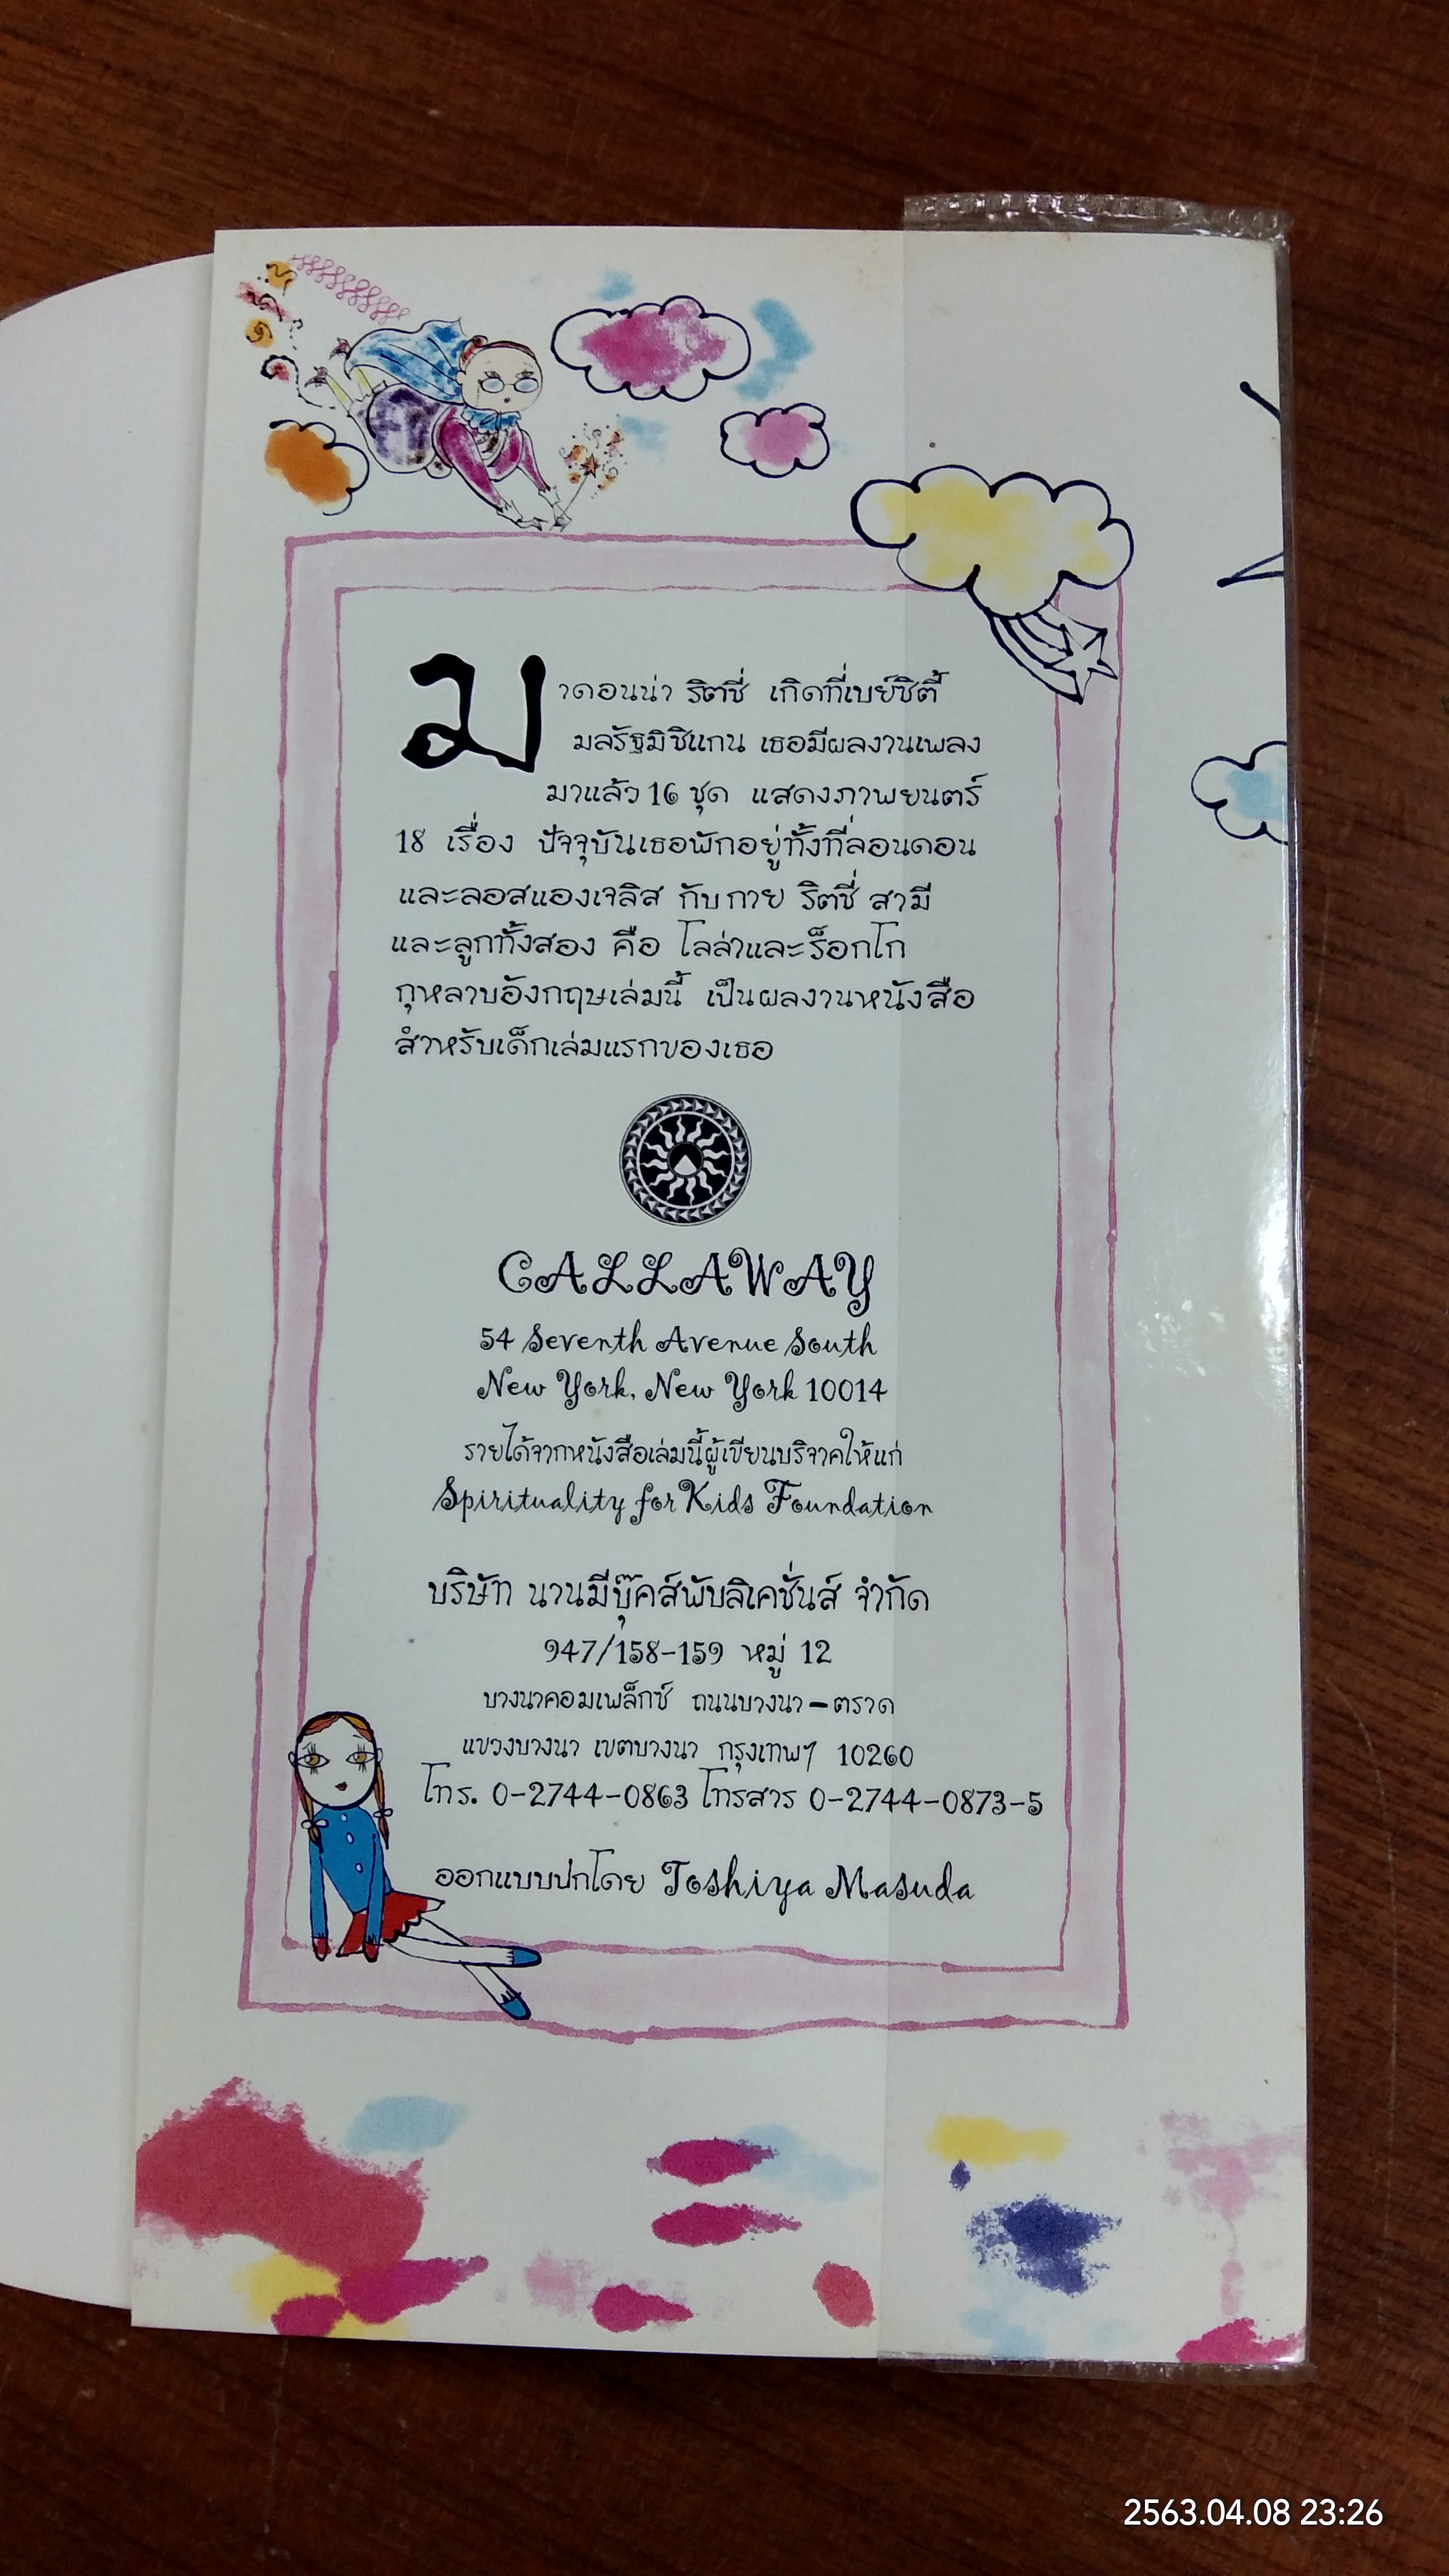 มาดอนน่า ริตชี่ เกิดที่เบย์ซิตี้
มลรัฐมิชิแกน เธอมีผลงานเพลง
มาแล้ว 16 ชุด แสดงภาพยนตร์
18 เรื่อง ปัจจุบันเธอพักอยู่ทั้งที่ลอนดอน
และลอสแองเจลิส กับ กาย ริตชี่ สามี
และลูกทั้งสอง คือ โลล่าและร็อกโก
กุหลาบอังกฤษเล่มนี้ เป็นผลงานหนังสือ
สำหรับเด็กเล่มแรกของเธอ
CALLAWAY
54 Seventh Avenue South
New York, New York 10014
รายได้จากหนังสือเล่มนี้ผู้เขียนบริจาคให้แก่
Spirituality for Kids Foundation
บริษัท นานมีบุ๊คส์พับลิเคชั่นส์ จำกัด
947/158-159 หมู่ 12
บางนาคอมเพล็กซ์ ถนนบางนา-ตราด
แขวงบางนา เขตบางนา กรุงเทพฯ 10260
โทร. 0-2744-0863 โทรสาร 0-2744-0873-5
ออกแบบปกโดย Toshiya Masuda
2563.04.08 23:26